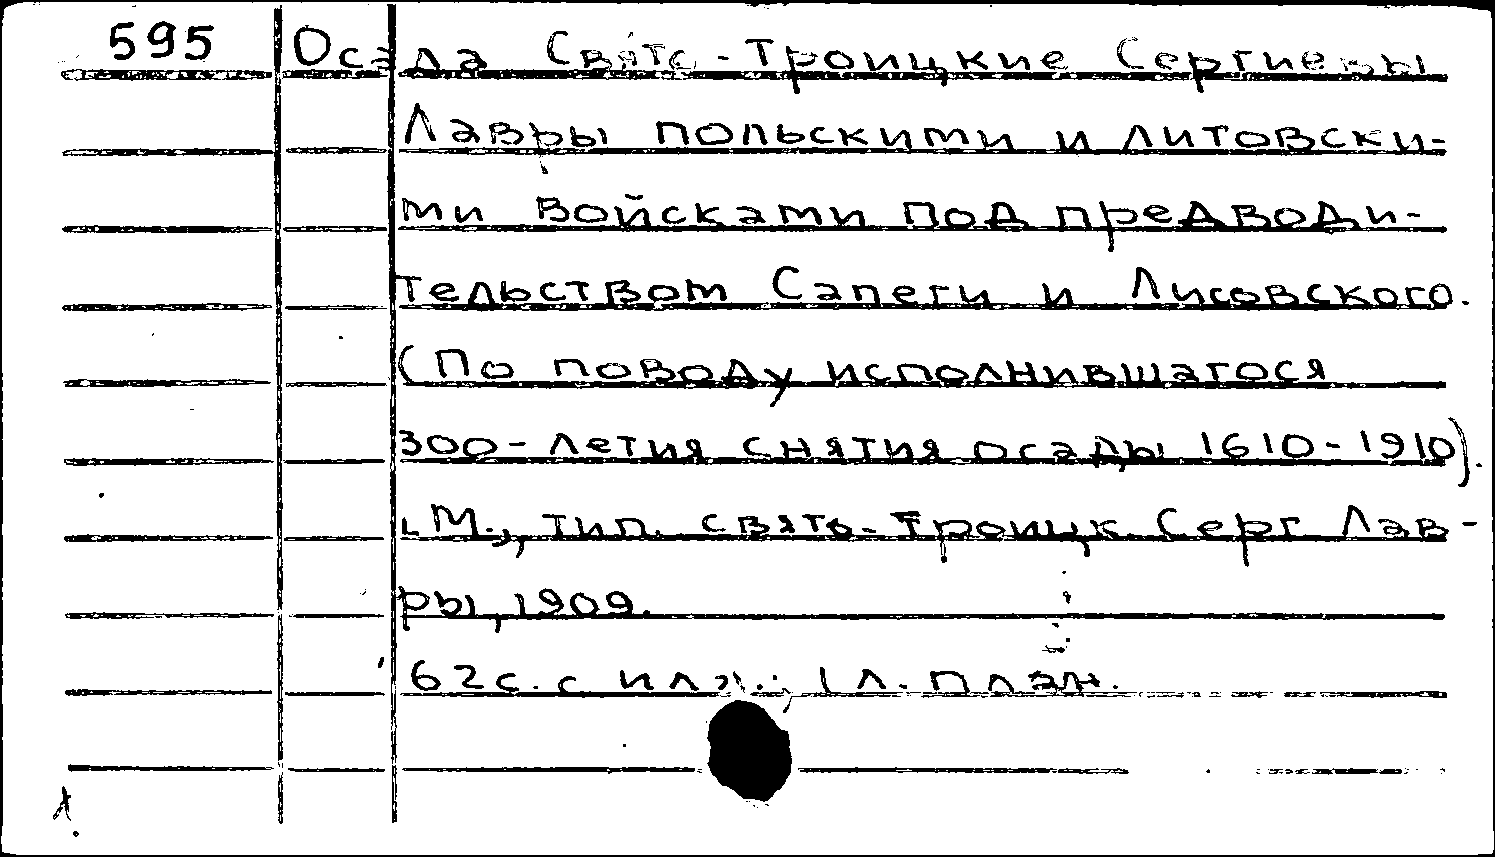 595 Осада Свято-Троицкие Сергиевы
Лавры польскими и литовски-
ми войсками под предводи-
тельством Сапеги и Лисовского.
(По поводу исполнившагося
300-летия снятия осады 1610-1910).
М., тип. свято-Троицк. Серг Лав-
ры, 1909.
62с. с илл.; 1 л. план.